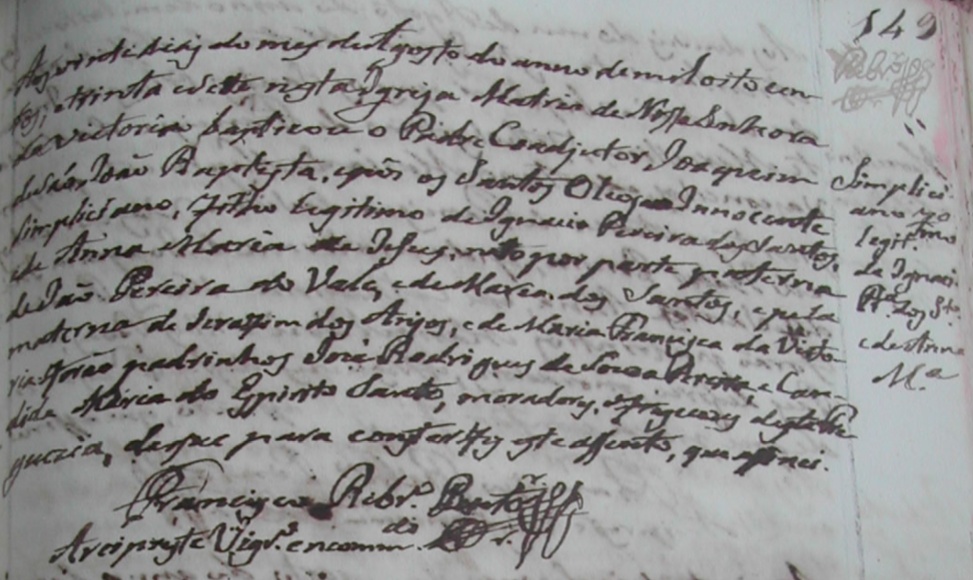 149
Aos vinte seis do mes de Agosto do anno de mil oito cen-
tos, e trinta e sette nesta Igreja Matris de Nossa Senhora
da Victoria baptizou o Padre Coadjutor Joaquim
de São João Baptista, e pôs os Santos Oleos a Innocente
Simpliciano, Filho legitimo de Ignacio Pereira dos Santos,
e de Anna Maria de Jesus, neto por parte paterna
de João Pereira do Valle, e de Maria dos Santos, e pela
materna de Serafim dos Anjos, e de Maria Francisca da Victo-
ria: forão padrinhos José Rodrigues de Souza Pereira, e Can-
dida Maria do Espirito Santo, moradores, e freguezes desta Fre-
guezia, do que para constar fiz este assento, que assinei.
Francisco Ribr.º Bento
Arcipreste Vigr.º encomm.do
Simplici-
ano
legit.
de Ignaci
Pr.ª dos St.os
e de Anna
M.ª